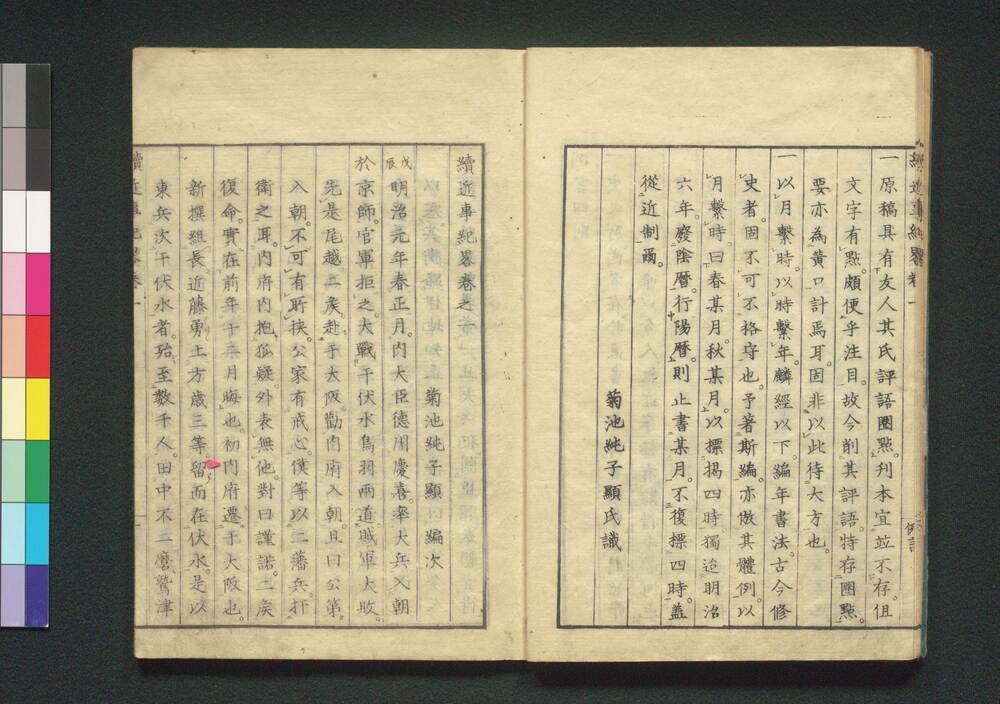 一原稿具有友人某氏評語圈點。刊本宜並不存。但
文字有點。頗便乎注目。故今削其評語。特存圈點。
要亦為黄口計焉耳。固非以此待大方也。
一以月繋時。以時繋年。麟經以下。編年書法。古今修
史者。固不可不格守也。予著斯編。亦倣其體例。以
月繋時。曰春某月。秋某月。以標揭四時。獨迨明治
六年。廢陰暦。行陽暦。則止書某月。不復標四時。蓋
從近制爾。
菊池純子顯氏識
例言
續近事紀畧卷之一
菊池純子顯曰編次
戊辰明治元年春正月。内大臣德川慶喜。率大兵入朝
於京師。官軍拒之。大戰于伏水鳥羽兩道。賊軍大敗
先是尾越二矦。赴于大阪。勸内府入朝。且曰公第
入朝。不可有聊挾。公家有戒心。僕等以二藩兵扞
衞之耳。内府内抱狐疑。外表無他。對曰謹諾。二矦
復命。實在前年十二月晦也。初内府遷于大阪也。
新撰組長。近藤勇。土方歳三等。留而在伏水。是以
東兵次于伏水者。殆至數千人。田中不二麿。鷲津